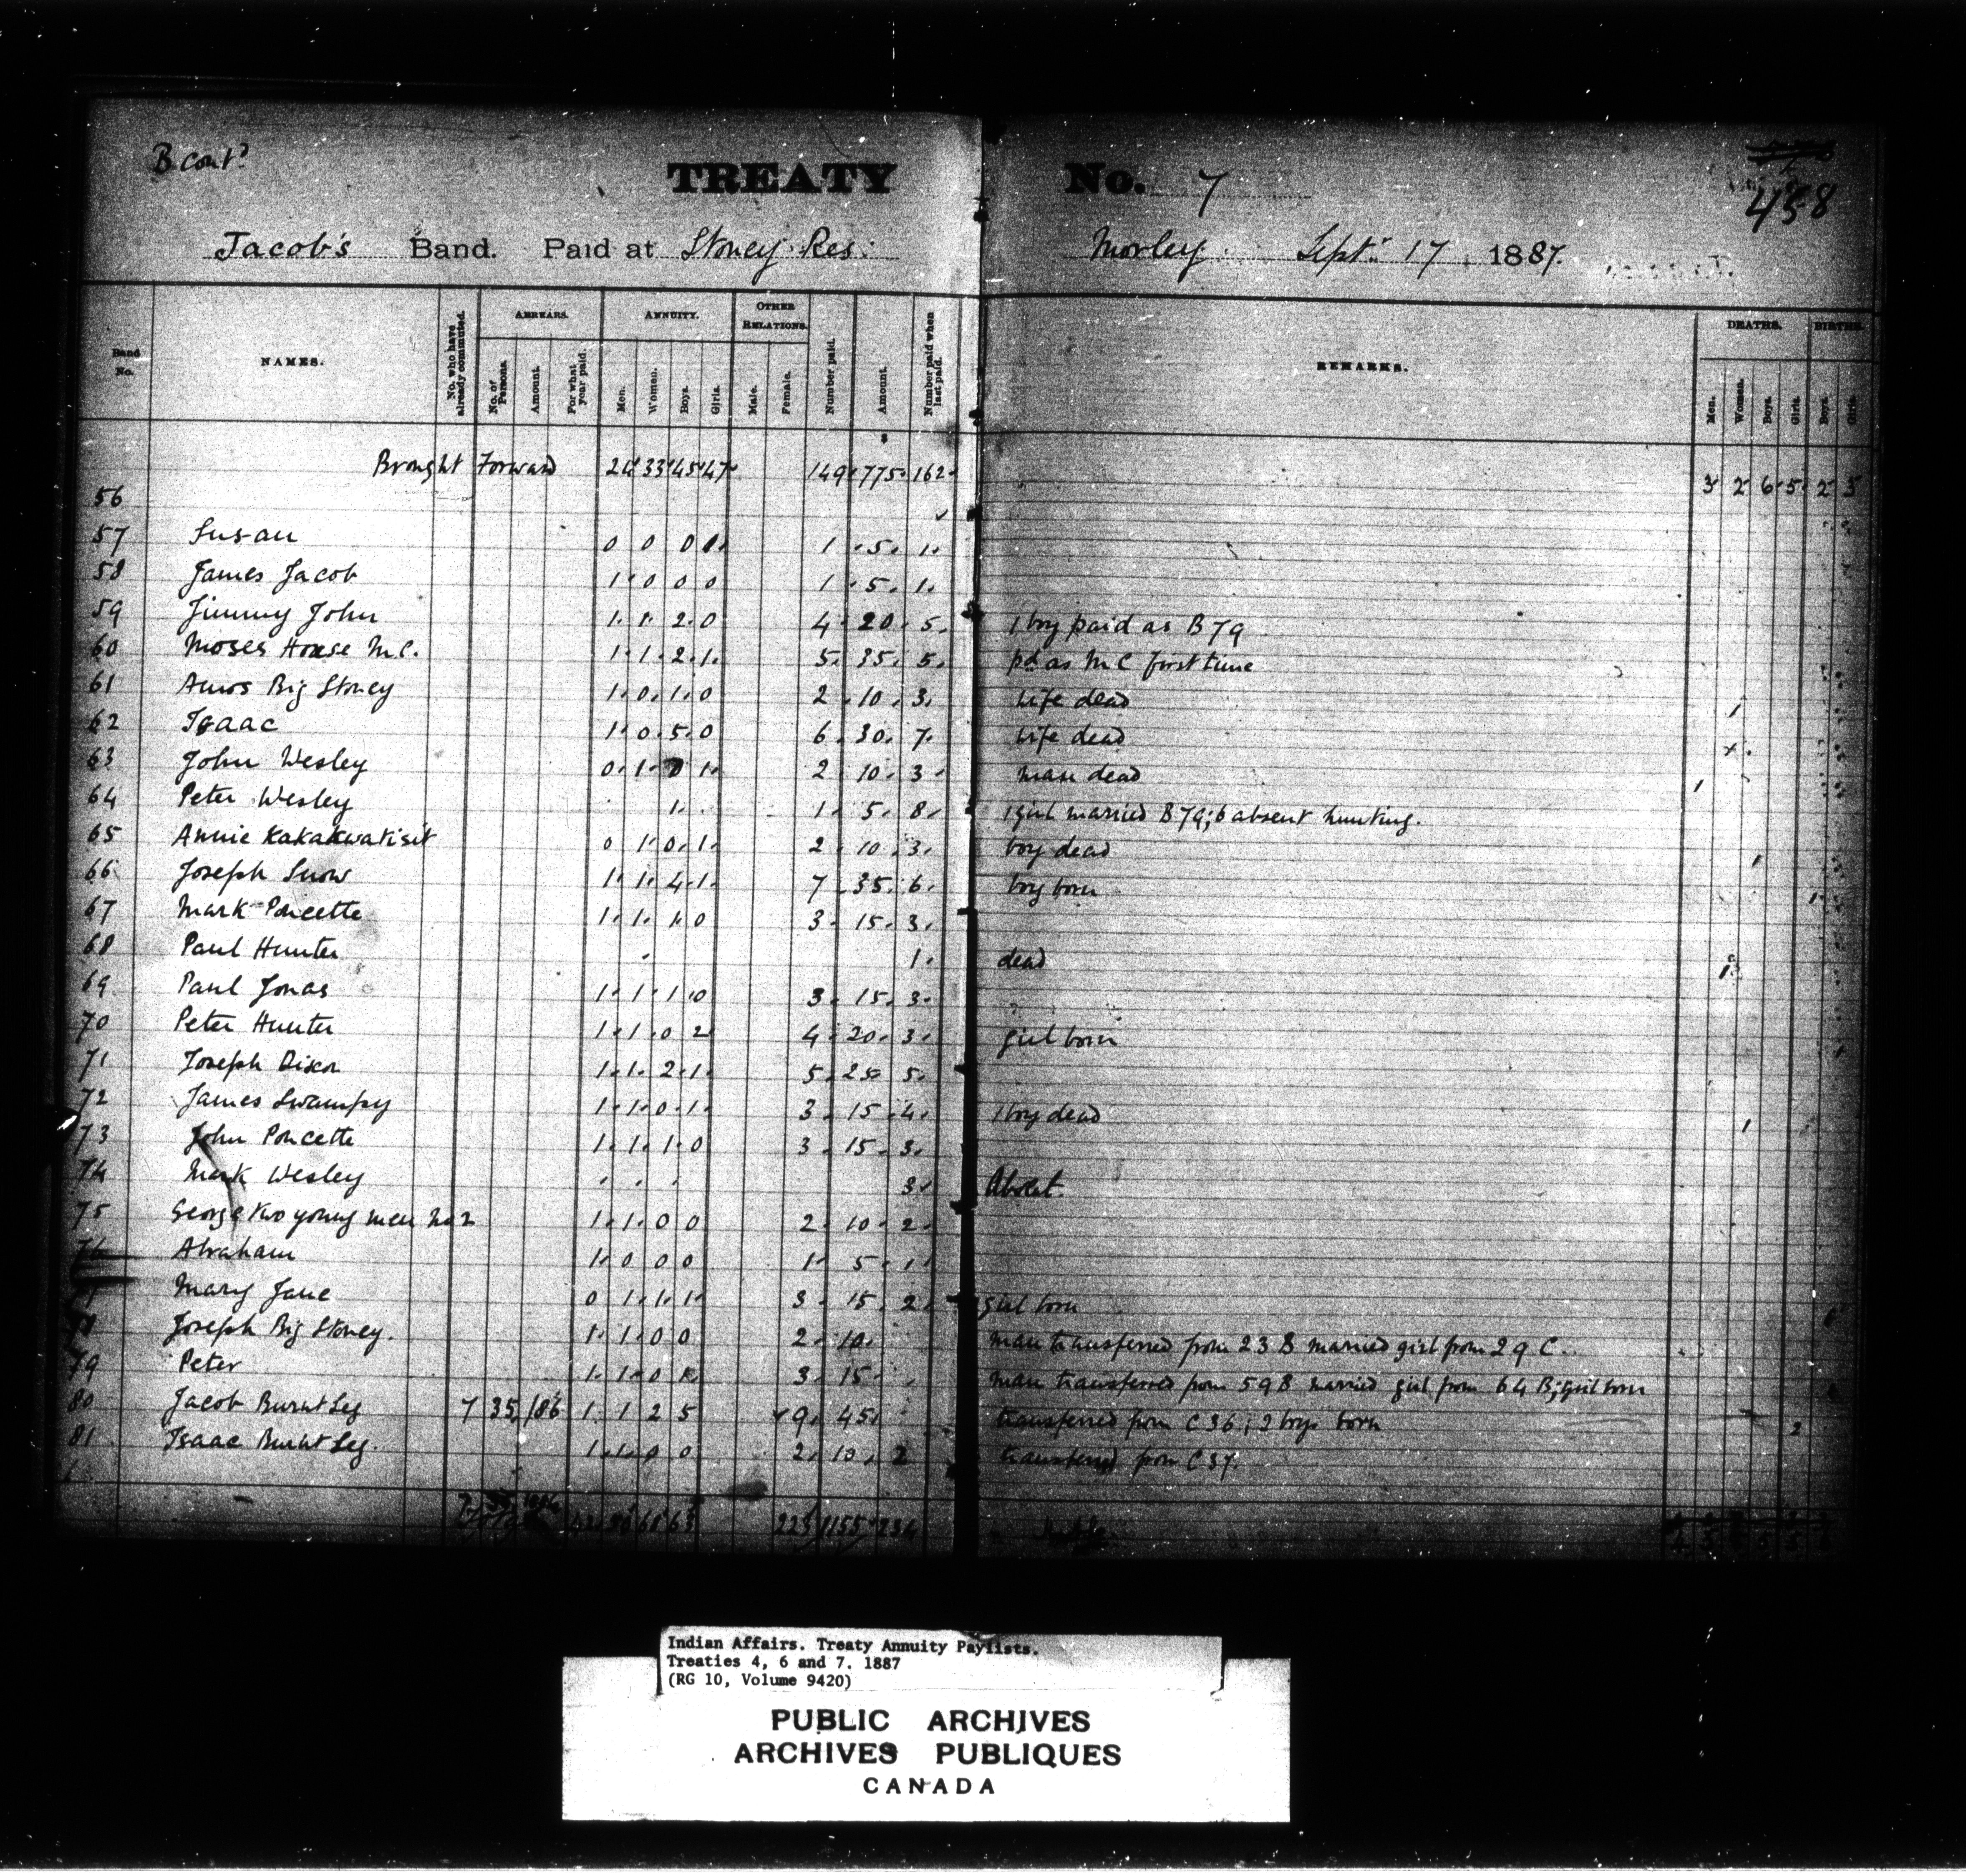 B cont'd
TREATY No. 7
458
Jacob's Band. Paid at Stoney Res: Morley Sept. 17, 1887.
Band No. NAMES. No. who have already commuted. ARREARS. No. of Persons. Amount. For what year paid. ANNUITY. Men. Women. Boys. Girls. OTHER RELATIONS. Male. Female. Number paid. Amount. Number paid when last paid. REMARKS. DEATHS. Men. Women. Boys. Girls. BIRTHS. Boys. Girls.
$
Brought Forward 24 33 45 47 149 775 162 3 2 6 5 2 3
56
57 Susan 0 0 0 1 1 5 1
58 James Jacob 1 0 0 0 1 5 1
59 Jimmy John 1 1 2 0 4 20 5 1 boy paid as B 79
60 Moses House M.C. 1 1 2 1 5 35 5 pd as M C first time
61 Amos Big Stoney 1 0 1 0 2 10 3 wife dead 1
62 Isaac 1 0 5 0 6 30 7 wife dead
63 John Wesley 0 1 0 1 2 10 3 man dead 1
64 Peter Wesley 1 1 5 8 1 girl married B 79; 6 absent hunting.
65 Annie Kakakwatisit 0 1 0 1 2 10 3 boy dead 1
66 Joseph Snow 1 1 4 1 7 35 6 boy born 1
67 Mark Poucette 1 1 1 0 3 15 3
68 Paul Hunter 1 dead 1
69 Paul Jonas 1 1 1 0 3 15 3
70 Peter Hunter 1 1 0 2 4 20 3 girl born 1
71 Joseph Dixon 1 1 2 1 5 25 5
72 James Swampy 1 1 0 1 3 15 4 1 boy dead 1
73 John Poucette 1 1 1 0 3 15 3
74 Mark Wesley 3 Absent.
75 George two young men No 2 1 1 0 0 2 10 2
76 Abraham 1 0 0 0 1 5 1
Mary Jane 0 1 1 1 3 15 2 girl born 1
78 Joseph Big Stoney. 1 1 0 0 2 10 man transferred from 23 B married girl from 29 C.
79 Peter 1 1 0 1 3 15 man transferred from 59 B married girl from 64 B; girl born
80 Jacob Burnt Leg 7 35 1886 1 1 2 5 9 45 transferred from C 36; 2 boys born 2
81 Isaac Burnt Leg. 1 1 0 0 2 10 2 transferred from C 37.
63 1155
Indian Affairs. Treaty Annuity Paylists.
Treaties 4, 6 and 7. 1887
(RG 10, Volume 9420)
PUBLIC ARCHIVES
ARCHIVES PUBLIQUES
CANADA